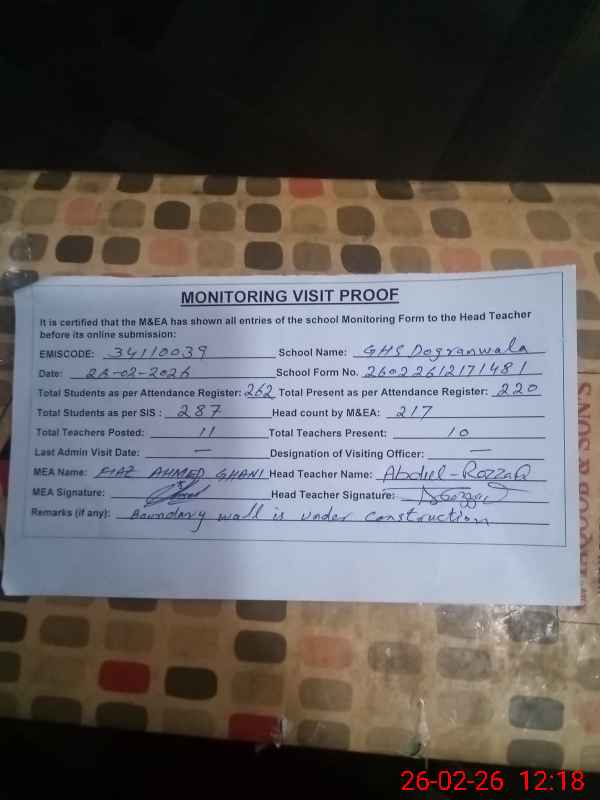 MONITORING VISIT PROOF
It is certified that the M&EA has shown all entries of the school Monitoring Form to the Head Teacher
before its online submission:
EMISCODE: 34110039 School Name: GHS Dogranwala
Date: 26-02-2026 School Form No. 26022612171481
Total Students as per Attendance Register: 262 Total Present as per Attendance Register: 220
Total Students as per SIS : 287 Head count by M&EA: 217
Total Teachers Posted: 11 Total Teachers Present: 10
Last Admin Visit Date: — Designation of Visiting Officer: —
MEA Name: AHMED GHANI Head Teacher Name: Abdul-Razzaq
MEA Signature: Head Teacher Signature:
Remarks (if any): Boundary wall is under construction
YAQOOB & SON'S
26-02-26 12:18